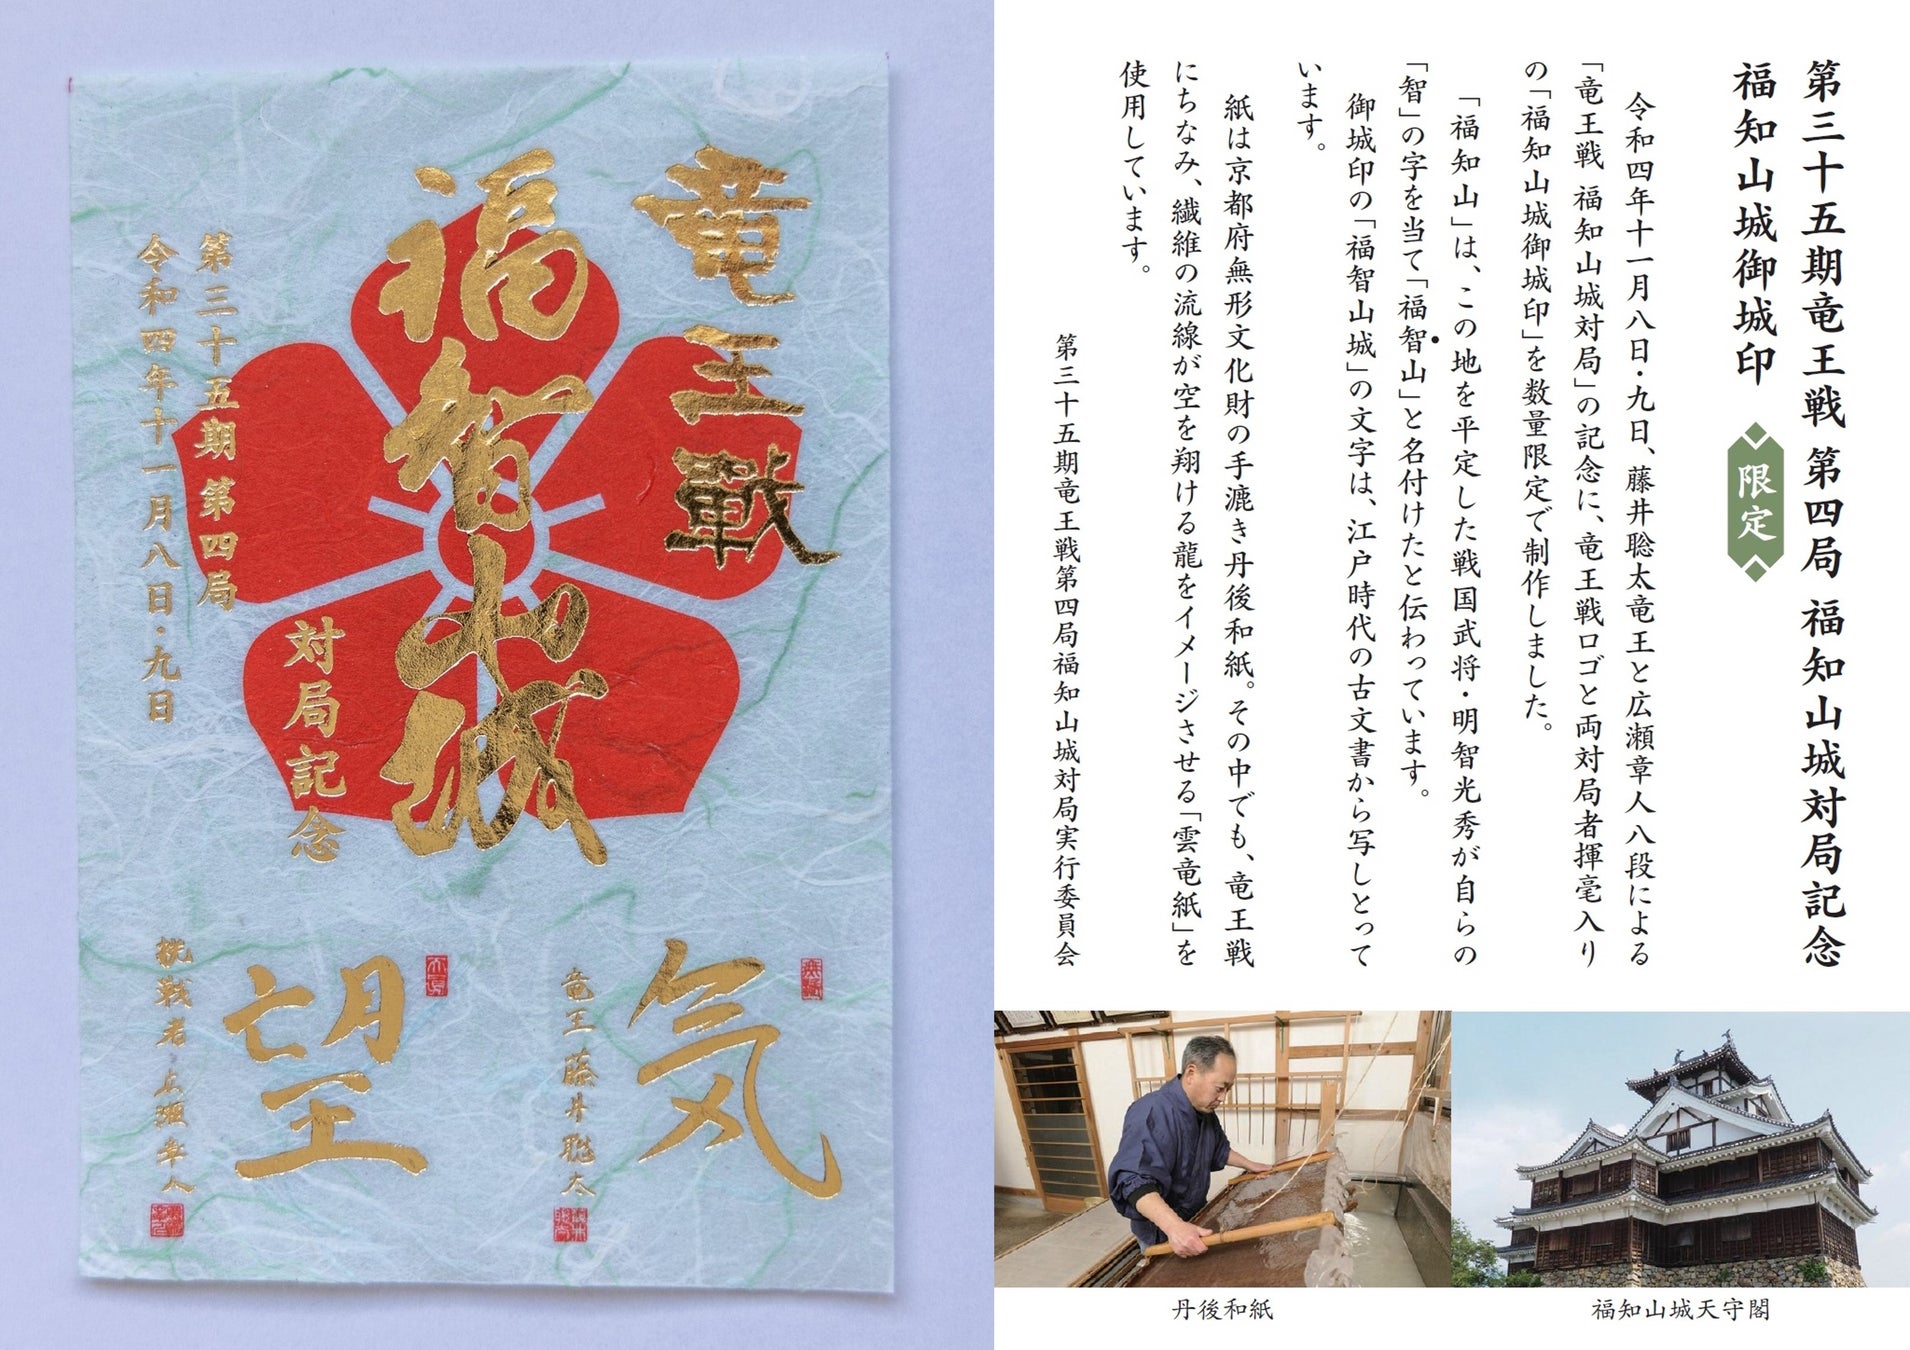 竜王戰
福智山城
対局記念
第三十五期 第四局
令和四年十一月八日・九日
気
竜王 藤井聡太
望
挑戦者 広瀬章人
第三十五期竜王戦 第四局 福知山城対局記念
福知山城御城印
限定
令和四年十一月八日・九日、藤井聡太竜王と広瀬章人八段による
「竜王戦 福知山城対局」の記念に、竜王戦ロゴと両対局者揮毫入り
の「福知山城御城印」を数量限定で制作しました。
「福知山」は、この地を平定した戦国武将・明智光秀が自らの
「智」の字を当て「福智山」と名付けたと伝わっています。
御城印の「福智山城」の文字は、江戸時代の古文書から写しとって
います。
紙は京都府無形文化財の手漉き丹後和紙。その中でも、竜王戦
にちなみ、繊維の流線が空を翔ける龍をイメージさせる「雲竜紙」を
使用しています。
第三十五期竜王戦第四局福知山城対局実行委員会
丹後和紙
福知山城天守閣